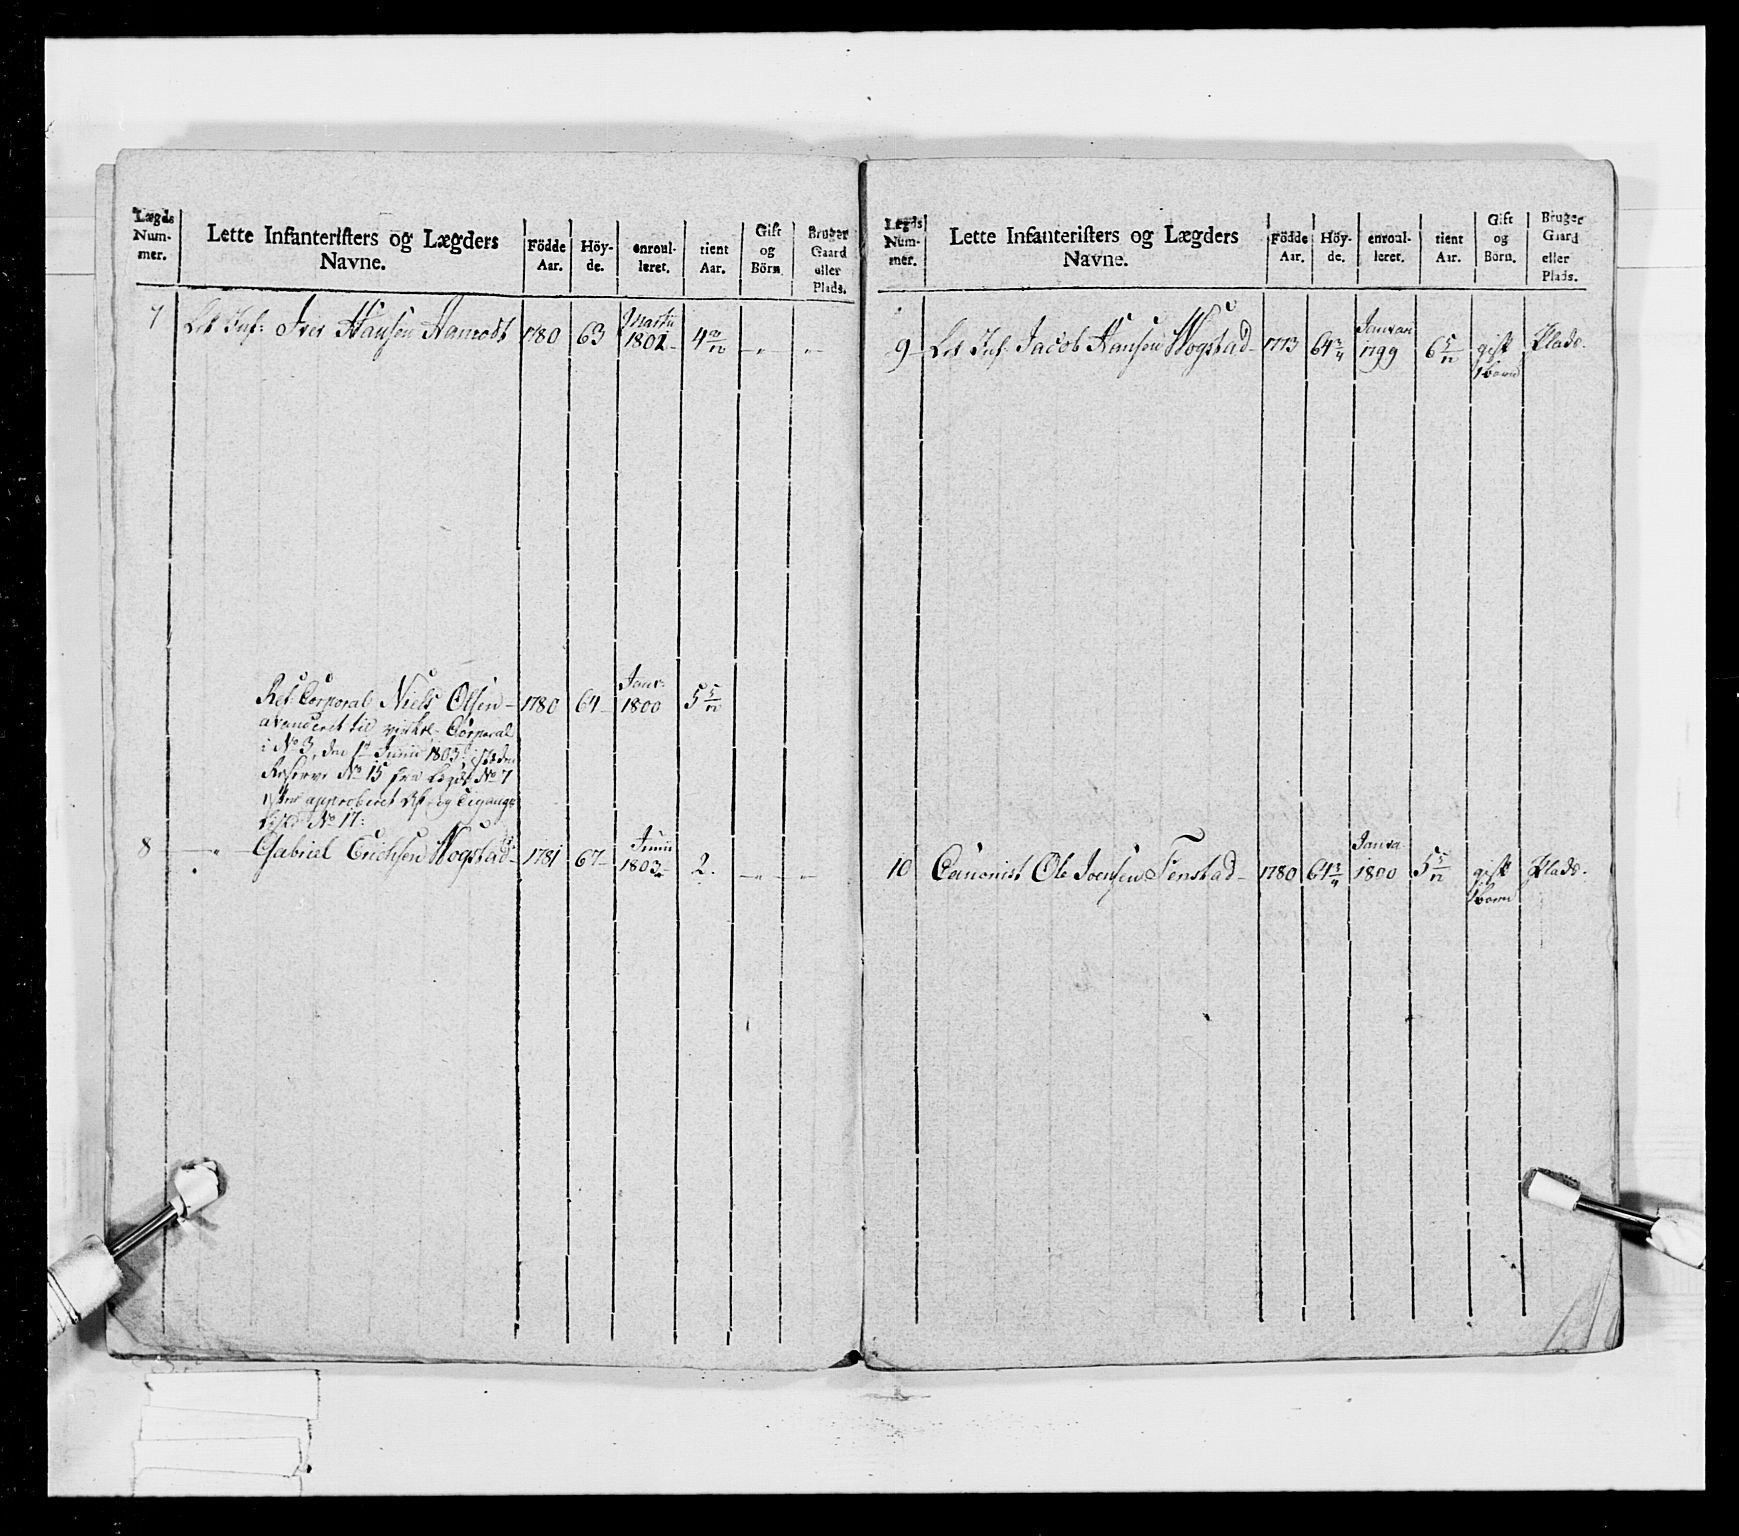 Lægds
Num-
mer.
Lette Infanterister og Lægders
Navne.
Födde
Aar.
Höy-
de.
enroul-
leret.
tient
Aar.
Gift
og
Börn.
Bruger
Gaard
eller
Plads.
7 Let Inf: Iver Hansen Aamodt 1780 63 Martii 1801 4 2/12 — " — — " —
Ref Corporal Niels Olsen 1780 64 Janv: 1800 5 5/12
avanceret til virkl. Corporal
i No 3, den 1te Junii 1803, isteden
Reserve No 15 fra Lægd No 7
No 17:
8 — " — Gabriel Erichsen Wogstad 1781 67 Junii 1803 2. — " — — " —
Lægds
Num-
mer.
Lette Infanterister og Lægders
Navne.
Födde
Aar.
Höy-
de.
enroul-
leret.
tient
Aar.
Gift
og
Börn.
Bruger
Gaard
eller
Plads.
9 Let Inf. Jacob Hansen Wogstad 1773 64 3/4 Januari 1799 6 5/12 gift 1 barn Plads.
10 Canonist Ole Joensen Tenstad 1780 64 3/4 Janua 1800 5 5/12 gift 1 barn Plads.